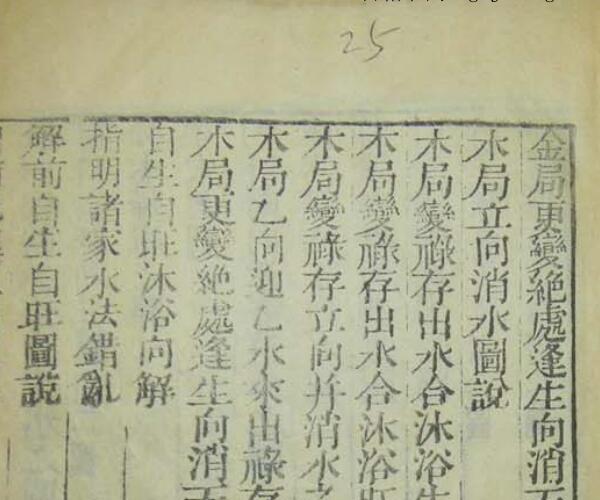 25
金局更變絕處逢生向消
木局立向消水圖說
木局變祿存出水合沐浴
木局變祿存出水合沐浴
木局變祿存立向并消水
木局乙向迎乙水來出祿存
木局更變絕處逢生向消
自生自旺沐浴向解
指明諸家水法錯亂
解前自生自旺圖說